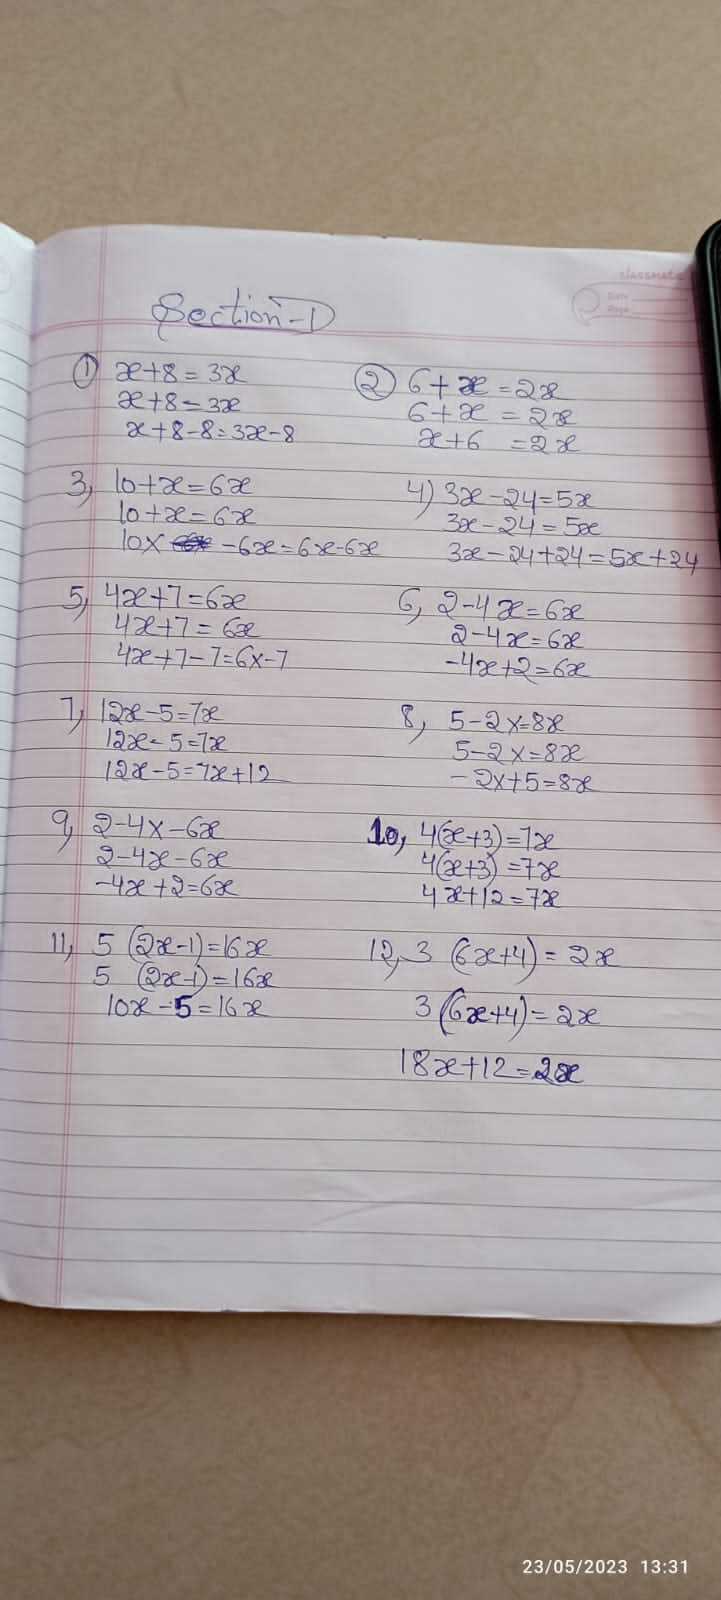 classmate
Date
Page
Section-D
① x+8=3x
x+8=3x
x+8-8=3x-8
② 6+x=2x
6+x=2x
x+6=2x
3, 10+x=6x
10+x=6x
10x -6x=6x-6x
4) 3x-24=5x
3x-24=5x
3x-24+24=5x+24
5, 4x+7=6x
4x+7=6x
4x+7-7=6x-7
6, 2-4x=6x
2-4x=6x
-4x+2=6x
7, 12x-5=7x
12x-5=7x
12x-5=7x+12
8, 5-2x=8x
5-2x=8x
-2x+5=8x
9, 2-4x-6x
2-4x-6x
-4x+2=6x
10, 4(x+3)=7x
4(x+3)=7x
4x+12=7x
11, 5 (2x-1)=16x
5 (2x-1)=16x
10x-5=16x
12, 3 (6x+4)=2x
3(6x+4)=2x
18x+12=2x
23/05/2023 13:31